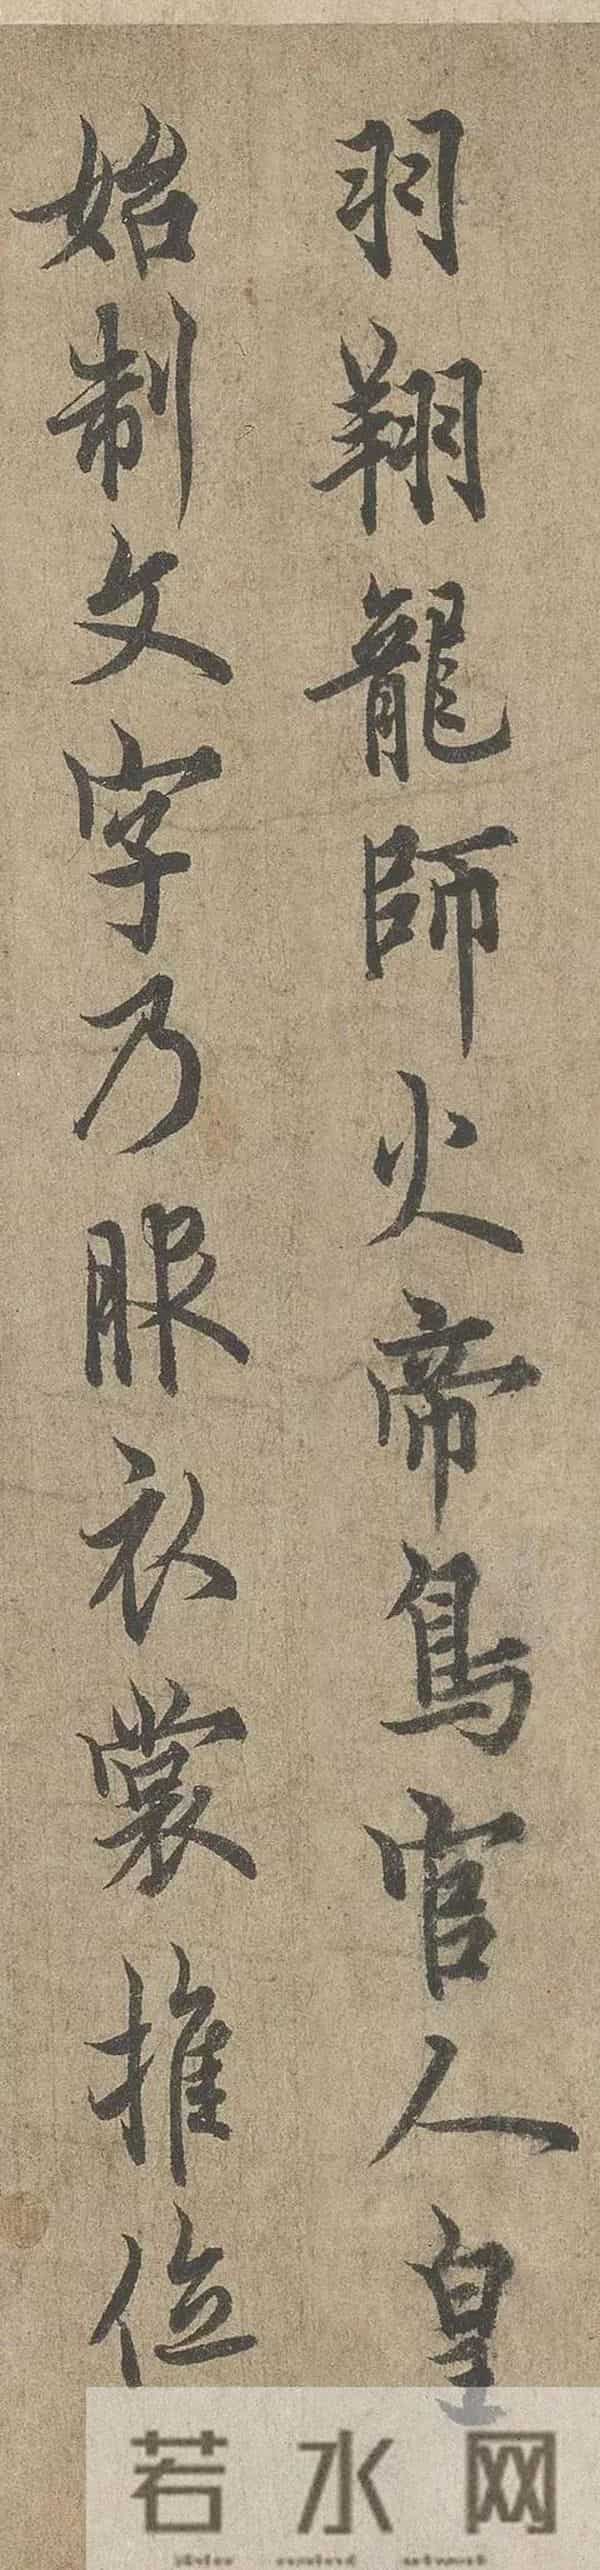 羽翔龍師火帝鳥官人皇
始制文字乃服衣裳推位
若水网